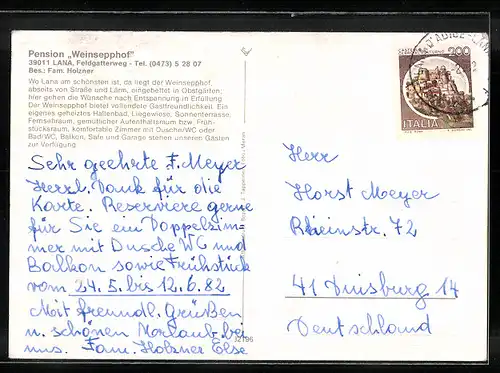 Pension „Weinsepphof"
39011 LANA, Feldgatterweg - Tel. (0473) 5 28 07
Bes.: Fam. Holzner
Wo Lana am schönsten ist, da liegt der Weinsepphof,
abseits von Straße und Lärm, eingebettet in Obstgärten;
hier gehen die Wünsche nach Entspannung in Erfüllung.
Der Weinsepphof bietet vollendete Gastfreundlichkeit. Ein
eigenes geheiztes Hallenbad, Liegewiese, Sonnenterrasse,
Fernsehraum, gemütlicher Aufenthaltsraum bzw. Früh-
stücksraum, komfortable Zimmer mit Dusche/WC oder
Bad/WC, Balkon, Safe und Garage stehen unseren Gästen
zur Verfügung
Sehr geehrte F. Meyer
Herzl. Dank für die
Karte. Reserviere gerne
für Sie ein Doppelzim-
mer mit Dusche WC und
Balkon sowie Frühstück
vom 24.5. bis 12.6.82
Mit freundl. Grüßen
u. schönen Urlaub bei
uns. Fam. Holzner Else
32196
200
ITALIA
Herr
Horst Meyer
Rheinstr. 72
41 Duisburg 14
Deutschland